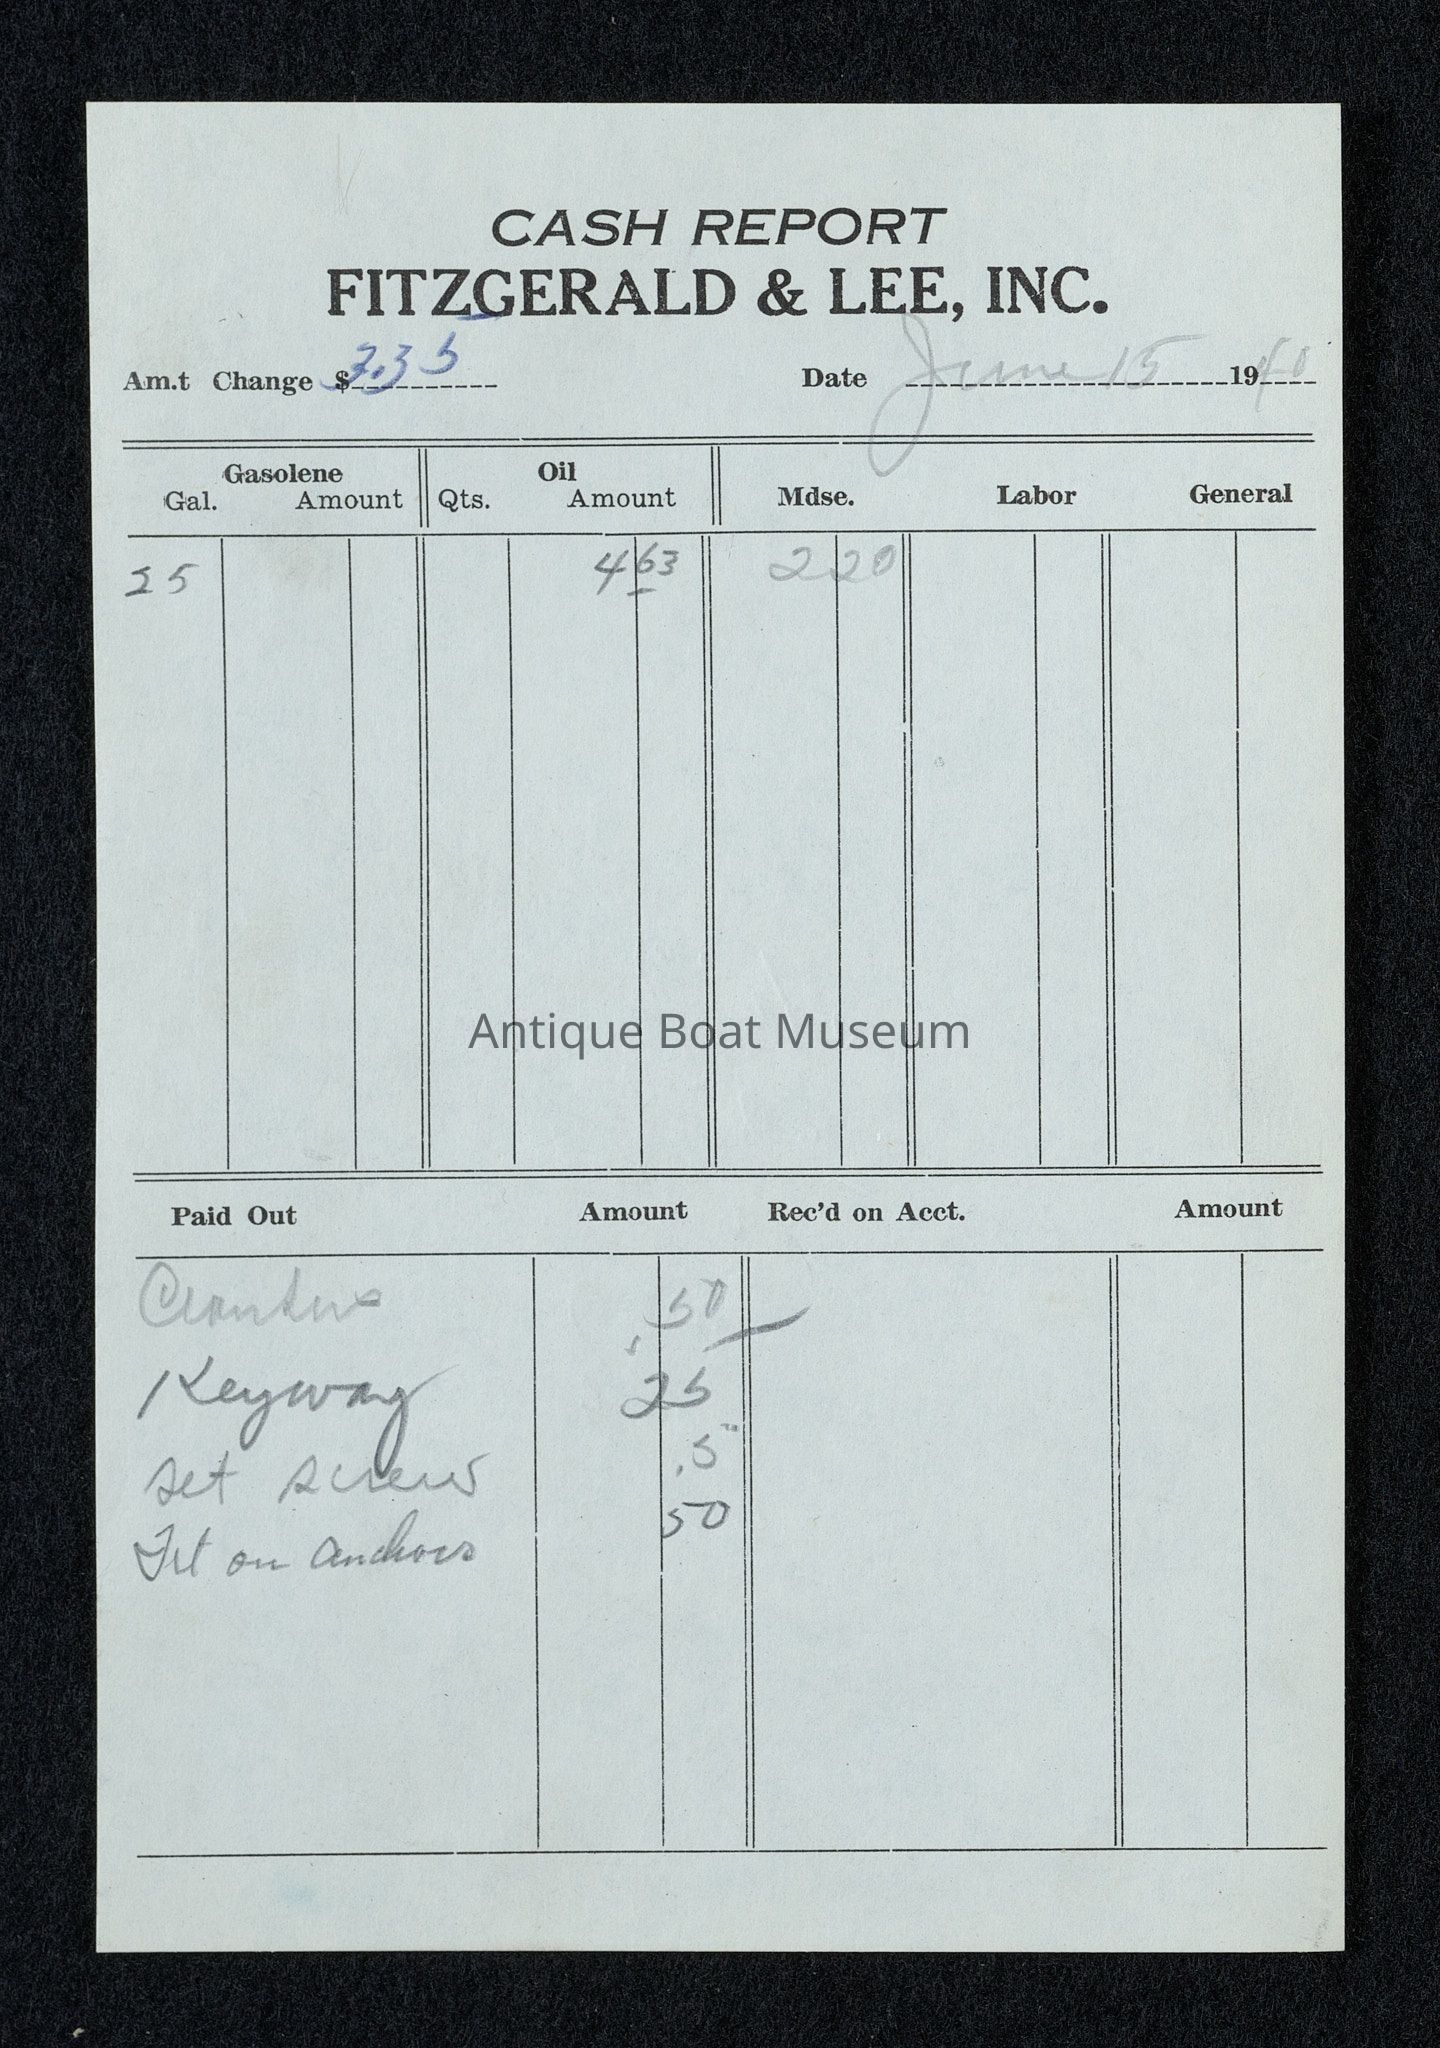 CASH REPORT
FITZGERALD & LEE, INC.
Am.t Change $ 3.35 Date June 15 1940
Gasolene Oil
Gal. Amount Qts. Amount Mdse. Labor General
25 4 63 2 20
Antique Boat Museum
Paid Out Amount Rec'd on Acct. Amount
.50
Keyway 25
set screw .5
on anchors 50